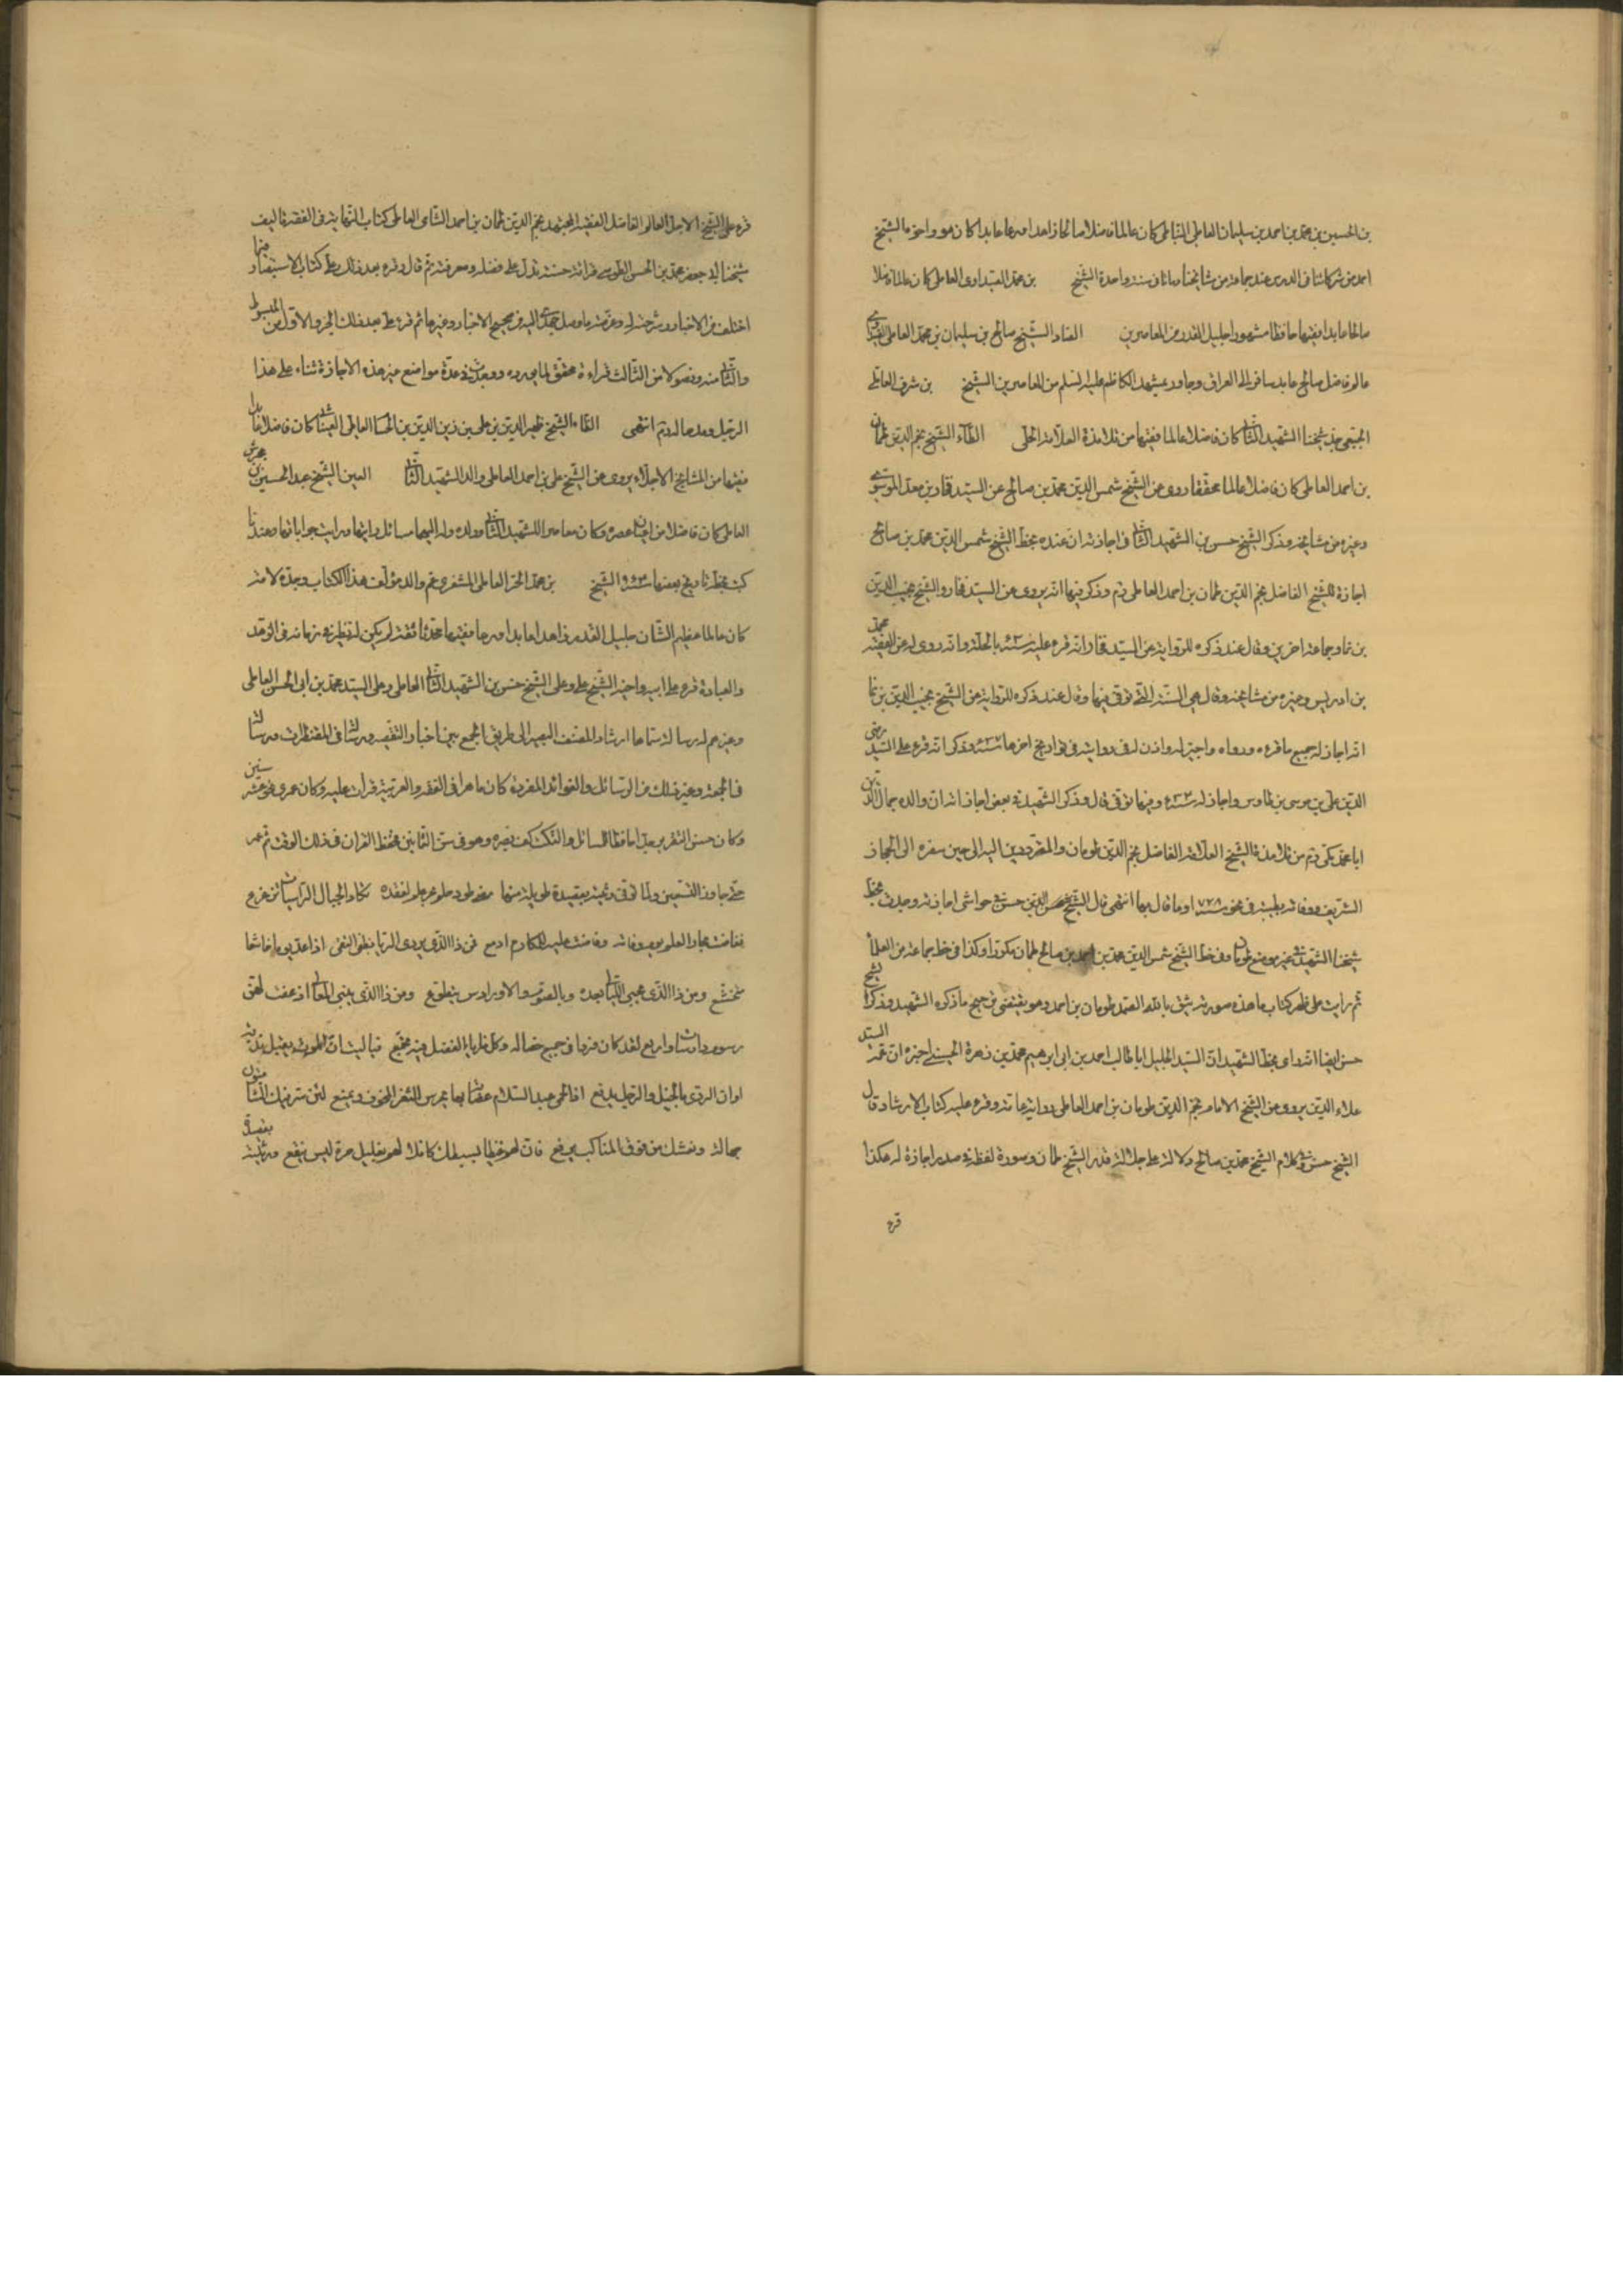 بن الحسين بن محمد بن احمد بن سليمان العاملي النباطي كان عالما فاضلا صالحا زاهدا ورعا عابدا كان هو واخوه الشيخ
احمد من شركائنا في الدرس عند جماعة من مشايخنا وماتا في سنة واحدة الشيخ بن محمد العاملي كان عالما فاضلا
صالحا عابدا فقيها حافظا مشهورا جليل القدر من المعاصرين الصاد الشيخ صالح بن سليمان بن محمد العاملي
عالم فاضل صالح عابد سافر الى العراق وجاور بمشهد الكاظم عليه السلم من المعاصرين الشيخ بن شرف العاملي
الجبعي جد شيخنا الشهيد الثاني كان فاضلا عالما فقيها من تلامذة العلامة الحلي الطاء الشيخ نجم الدين طمان
بن احمد العاملي كان فاضلا عالما محققا روى عن الشيخ شمس الدين محمد بن صالح عن السيد فخار بن معد الموسوي
وغيره من مشايخه وذكر الشيخ حسن بن الشهيد الثاني في اجازته ان عنده بخط الشيخ شمس الدين محمد بن صالح
اجازة للشيخ الفاضل نجم الدين طمان بن احمد العاملي ره وذكر فيها انه يروى عن السيد فخار والشيخ نجيب الدين
بن نما وجماعة اخرين وقال عند ذكره للرواية عن السيد فخار انه قرء عليه سنة بالحلة وانه روى له عن الفقيه محمد
بن ادريس وغيره من مشايخه وقال هي السنة التي توفي فيها وقال عند ذكره للرواية عن الشيخ نجيب الدين بن نما
انه اجاز له جميع ما قرءه ورواه واجيز له واذن له في روايته في تواريخ اخرها وذكر انه قرء على السيد رضي
الدين علي بن موسى بن طاوس واجاز له سنة وفيها توفي قال وذكر الشهيد في بعض اجازاته ان والده جمال الدين
ابا محمد مكي ره من تلامذة الشيخ العلامة الفاضل نجم الدين طومان والمترددين اليه الى حين سفره الى الحجاز
الشريف ووفاته بطيبة في نحو سنة ٧٢٨ او ما قاربها انتهى قال الشيخ حسن في حواشي اجازته وجدت بخط
شيخنا الشهيد في غير موضع طومان وفي خط الشيخ شمس الدين محمد بن احمد بن صالح طمان مكررا وكذا في خط جماعة من العلماء
ثم رايت على ظهر كتاب ما هذه صورته يثق بالله الصمد طومان بن احمد وهو يقتضي ترجيح ما ذكره الشهيد وذكر الشيخ
حسن ايضا انه راى بخط الشهيد ان السيد الجليل ابا طالب احمد بن ابي ابرهيم محمد بن زهرة الحسيني اخبره ان عمه السيد
علاء الدين يروى عن الشيخ الامام نجم الدين طومان بن احمد العاملي رواية عامة وقرء عليه كتاب الارشاد قال
الشيخ حسن وفي كلام الشيخ محمد بن صالح دلالة على جلالة قدر الشيخ طمان وصورة لفظه في صدر اجازة له هكذا
قرء
قرء علي الشيخ الاجل العالم الفاضل الفقيه المجتهد نجم الدين طمان بن احمد الشامي العاملي كتاب النهاية في الفقه تاليف
شيخنا ابي جعفر محمد بن الحسن الطوسي قرائة حسنة تدل على فضله ومعرفته ثم قال وقرء بعد ذلك على كتاب الاستبصار فيما
اختلف من الاخبار وشرحته له وعرفته ما وصل جهدي اليه من صحيح الاخبار وغيرها ثم قرء علي بعد ذلك الجزء الاول من المبسوط
والثاني منه وفصولا من الثالث قراءة محقق لما يورده ووجدت في عدة مواضع غير هذه الاجازة ثناء على هذا
الرجل ومدحا له ره انتهى الظاء الشيخ ظهير الدين بن علي بن زين الدين بن الحسام العاملي العيناثي كان فاضلا عابدا
فقيها من المشايخ الاجلاء يروى عن الشيخ علي بن احمد العاملي والد الشهيد الثاني العين الشيخ عبد الحسين
العاملي كان فاضلا من اعيان عصره وكان معاصرا للشهيد الثاني وولده وله اليهما مسائل رايتها ورايت جواباتها وعندنا
كتب بخطه تاريخ بعضها سنة الشيخ بن محمد الحر العاملي المشغري عم والد مؤلف هذا الكتاب وجده لامه
كان عالما عظيم الشان جليل القدر زاهدا عابدا ورعا فقيها محدثا ثقة لم يكن له نظير في زمانه في الزهد
والعبادة قرء على ابيه واخيه الشيخ علي وعلى الشيخ حسن بن الشهيد الثاني العاملي وعلى السيد محمد بن ابي الحسن العاملي
وغيرهم له رسالة سماها ارشاد المنصف البصير الى طريق الجمع بين اخبار التقصير ورسالة في المفطرات ورسالة
في الجمعة وغير ذلك من الرسائل والفوائد المفردة كان ماهرا في الفقه والعربية قرات عليه وكان عمري نحو عشر سنين
وكان حسن التقرير جدا حافظا للمسائل والنكت كف بصره وهو في سن الثمانين فحفظ القران في ذلك الوقت ثم عمر
حتى جاوز التسعين ولما توفي رثيته بقصيدة طويلة منها مضى طود حلم بحر علم لفقده تكاد الجبال الراسيات تزعزع
فغاضت بحار العلم يوم وفاته وفاضت عليه للمكارم ادمع فمن ذا الذي يروى الربا بظبى التقى اذا عد يوما خاشعا
متخشع ومن ذا الذي يحيي الليالي بعده وبالصوم والاوراد من يتطوع ومن ذا الذي يبني المعالي اذ عفت لهن
رسوم دارسات واربع لقد كان فردا في جميع خصاله وكل مزايا الفضل فيه تجمع فيا ليت ان الموت يقبل فدية
اوان الردى بالخيل والرجل يدفع افاطمي عبد السلام عصابة بها يحرس الثغر المخوف ويمنع لئن سرفيك الشامتون
جمالك ونعشك من فوق المناكب يرفع فان لهم غيظا بسبطك كاملا لهم بقليل مرة ليس ينفع ورثيته بقصيدة